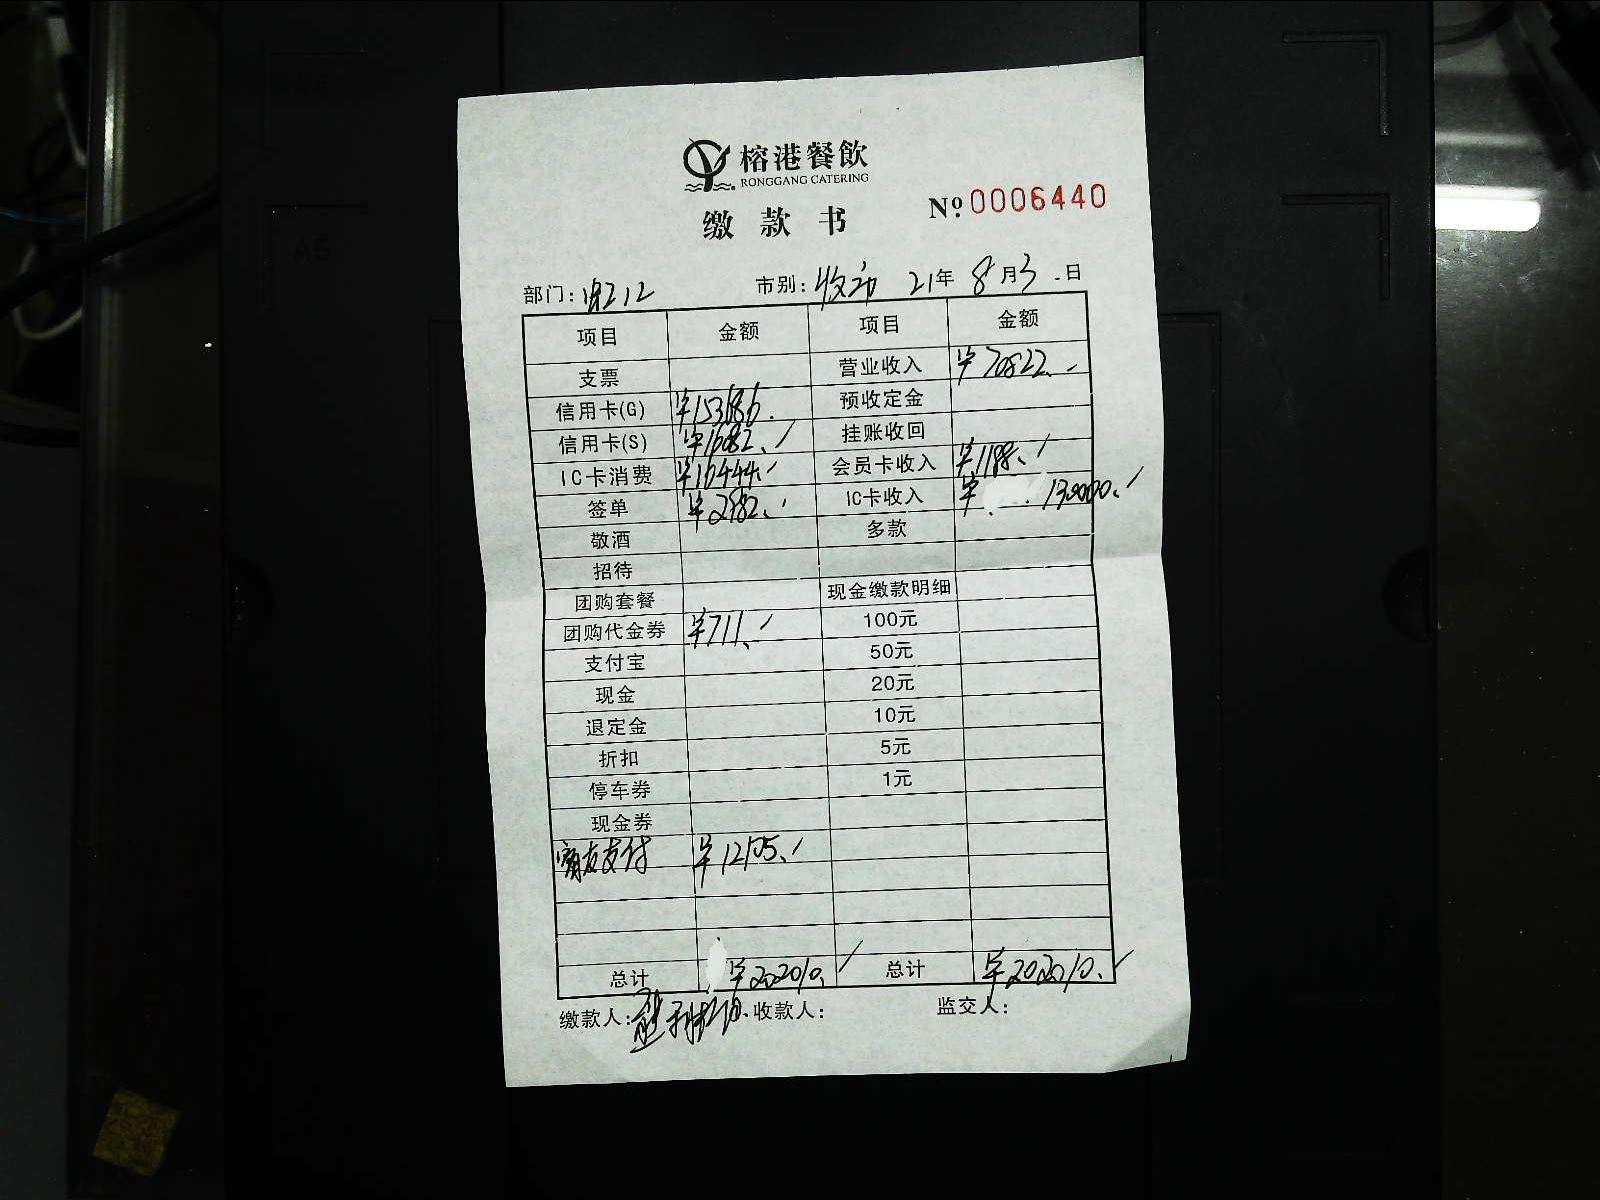 榕港餐飲
RONGGANG CATERING
缴款书
Nº 0006440
部门: 市别: 收市 21年 8月3日
项目 金额 项目 金额
支票 营业收入 ¥70822.
信用卡(G) ¥153686. 预收定金
信用卡(S) ¥16082. 挂账收回
IC卡消费 ¥16444. 会员卡收入 ¥1188.
签单 ¥2982. IC卡收入 ¥ 130000.
敬酒 多款
招待
团购套餐 现金缴款明细
团购代金券 ¥711. 100元
支付宝 50元
现金 20元
退定金 10元
折扣 5元
停车券 1元
现金券
支付 ¥12105.
总计 ¥202010. 总计 ¥202010.
缴款人: 收款人: 监交人: